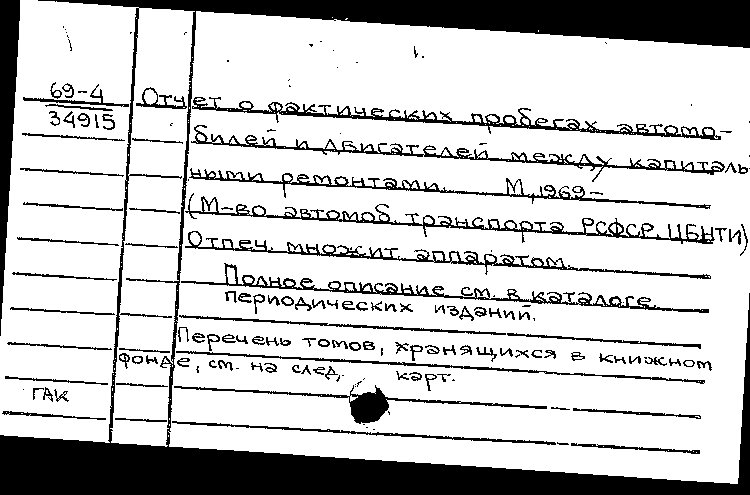 1.
69-4
34915
Отчет о фактических пробегах автомо-
билей и двигателей между капиталь
ными ремонтами. М., 1969-
(М-во автомоб. транспорта РСФСР. ЦБНТИ)
Отпеч. множит. аппаратом.
Полное описание см. в каталоге
периодических изданий.
Перечень томов, хранящихся в книжном
фонде, см. на след. карт.
ГАК